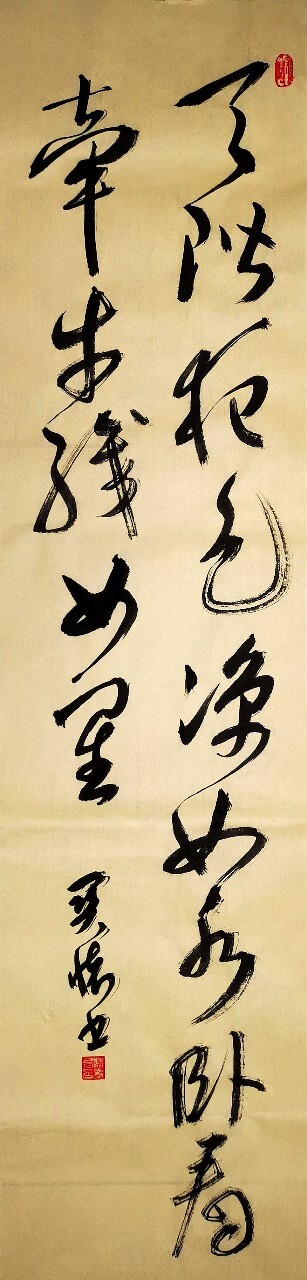 天阶夜色凉如水卧看
牵牛织女星
书